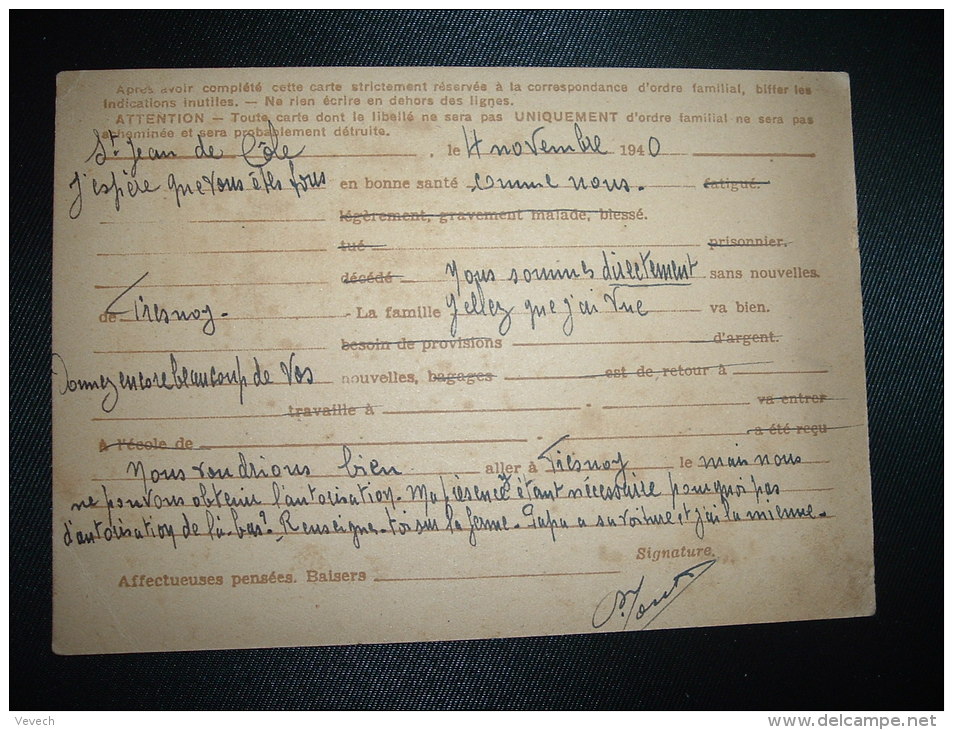 Après avoir complété cette carte strictement réservée à la correspondance d'ordre familial, biffer les
indications inutiles. — Ne rien écrire en dehors des lignes.
ATTENTION — Toute carte dont le libellé ne sera pas UNIQUEMENT d'ordre familial ne sera pas
acheminée et sera probablement détruite.
St. Jean de Côle , le 4 novembre 1940
J'espère que vous êtes tous en bonne santé comme nous. fatigué.
légèrement, gravement malade, blessé.
tué prisonnier.
décédé Nous sommes directement sans nouvelles.
de Fresnoy. - La famille Jellez que j'ai vue va bien.
besoin de provisions d'argent.
Donnez encore beaucoup de vos nouvelles, bagages est de retour à
travaille à va entrer
à l'école de a été reçu
Nous voudrions bien aller à Fresnoy le mais nous
ne pouvons obtenir l'autorisation. Ma présence y étant nécessaire pourquoi pas
d'autorisation de là-bas? Renseigne-toi sur la ferme. Papa a sa voiture et j'ai la mienne.
Signature.
Affectueuses pensées. Baisers
Vevech
www.delcampe.net